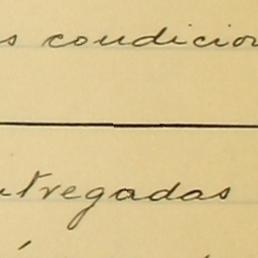 s condicion
ntregadas